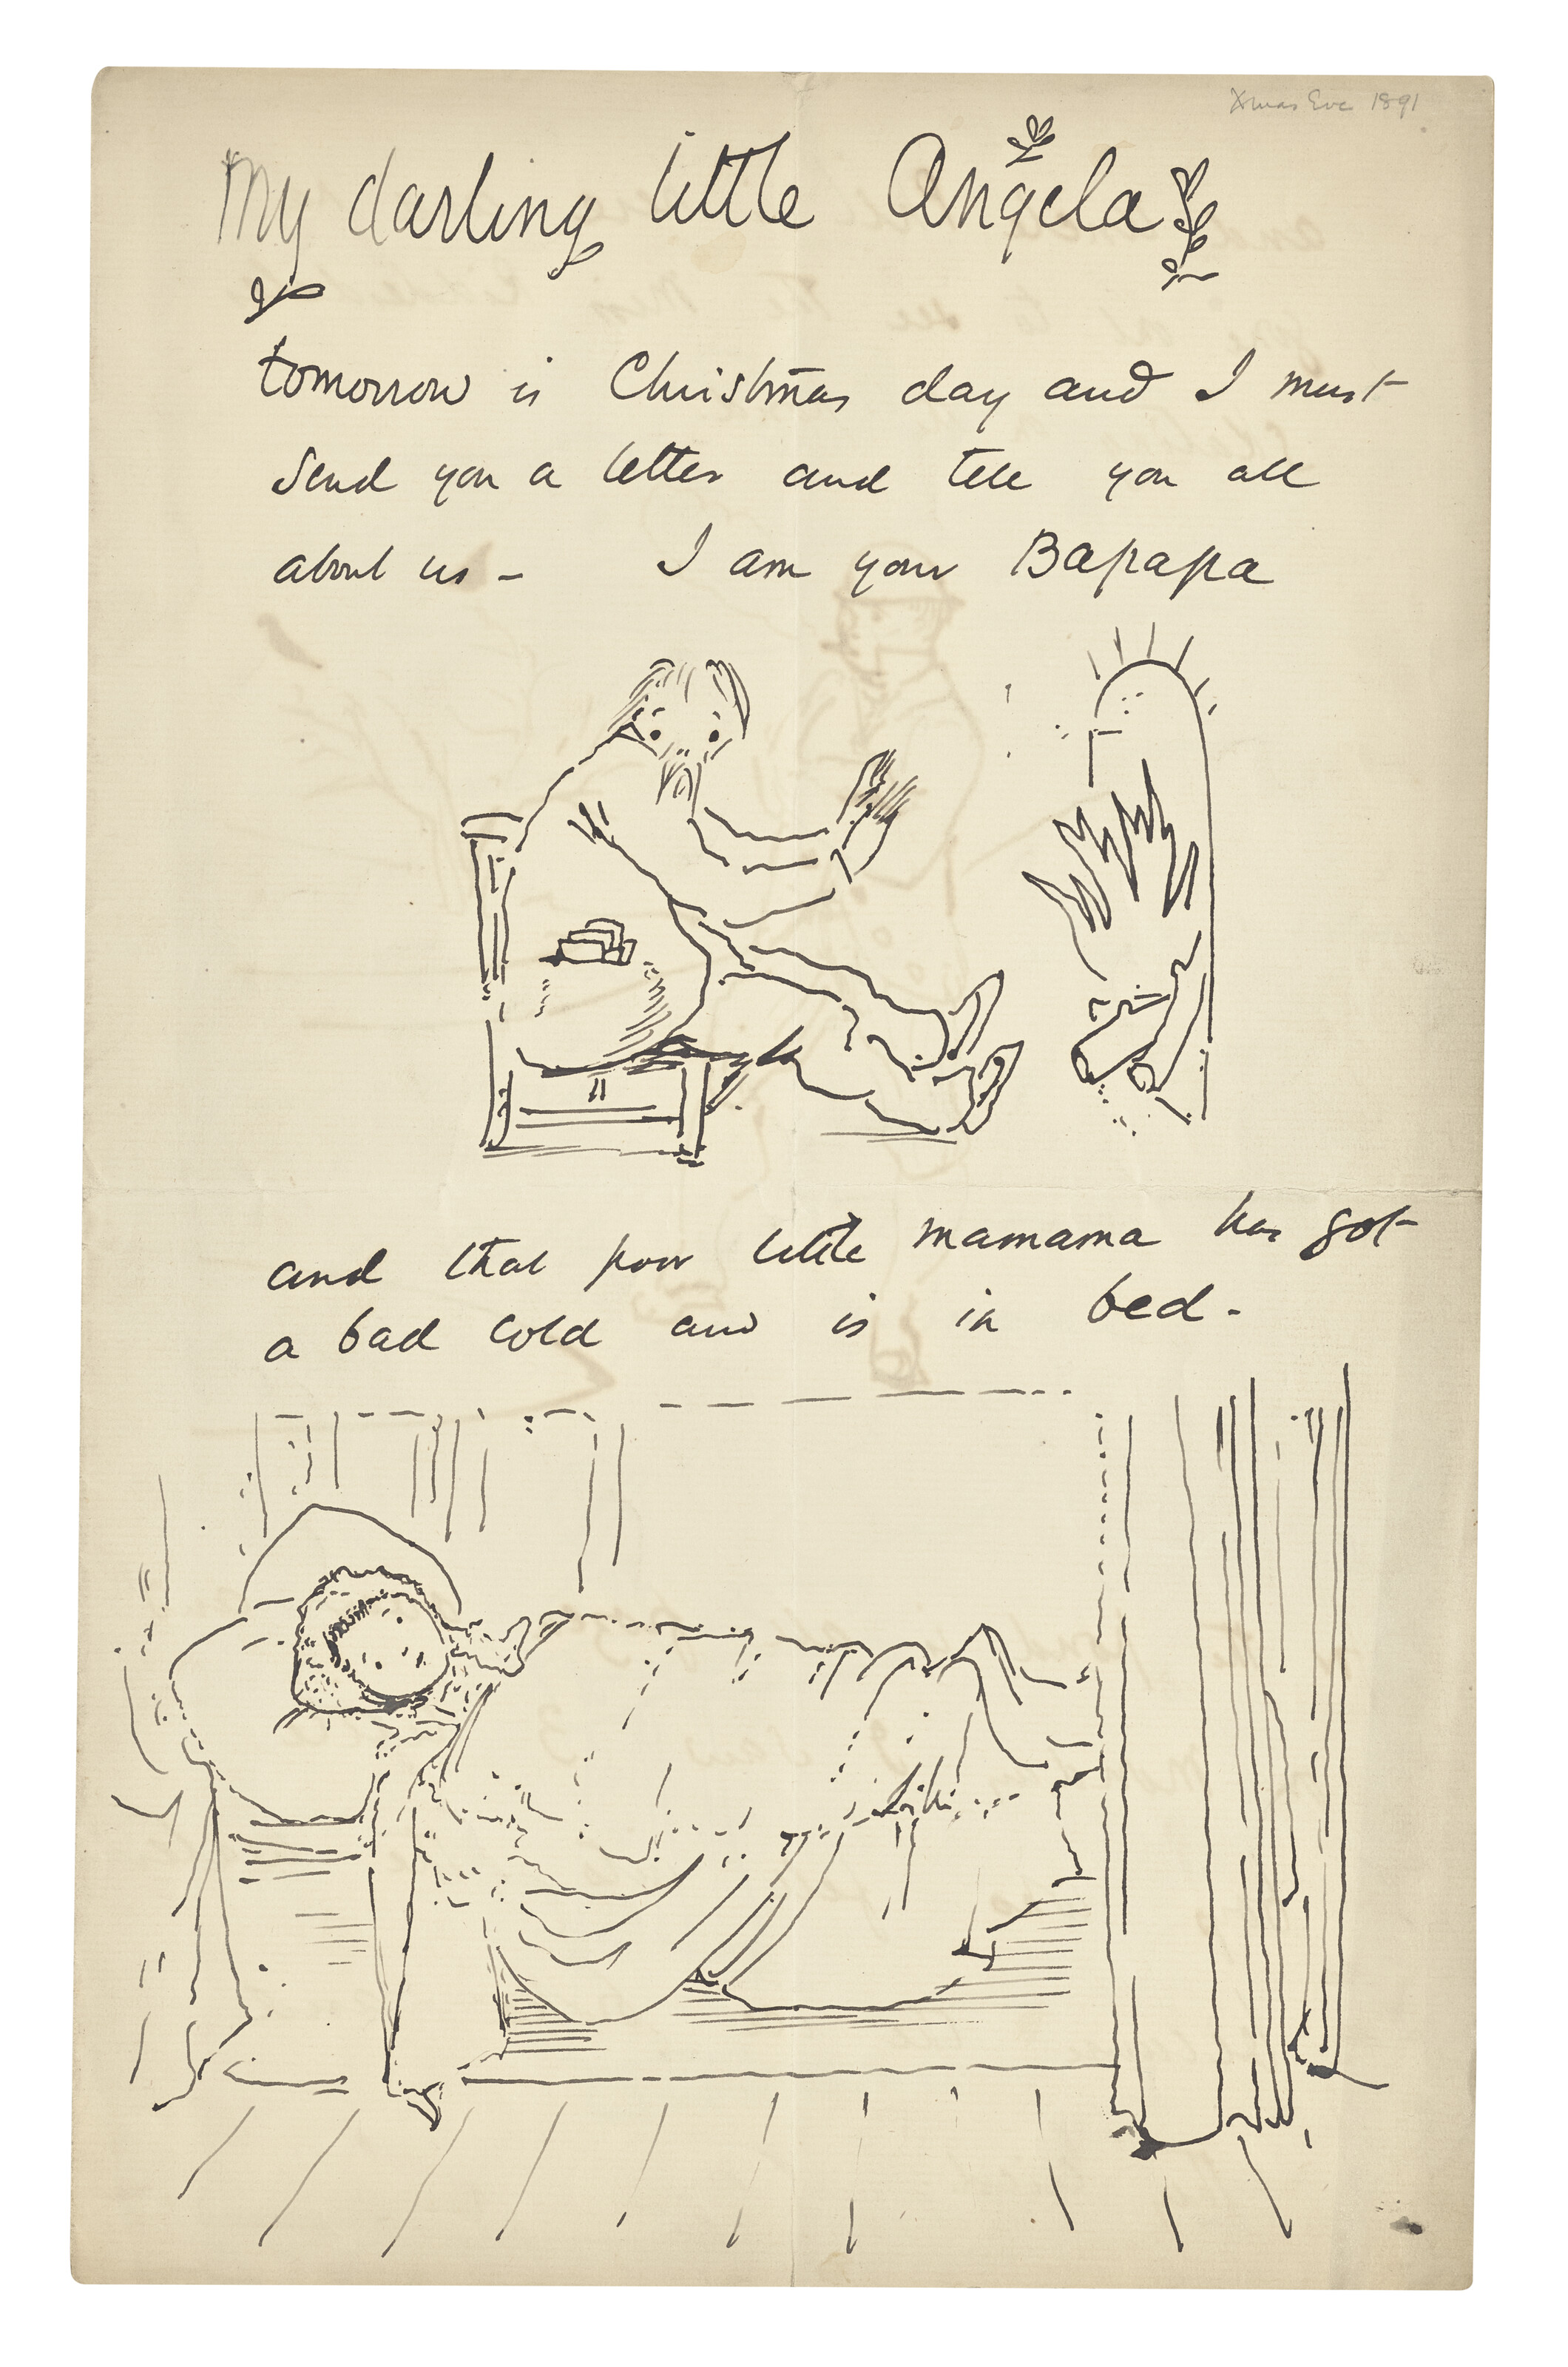 Xmas Eve 1891
My darling little Angela
tomorrow is Christmas day and I must
send you a letter and tell you all
about us - I am your Bapapa
and that poor little mamama has got
a bad cold and is in bed -